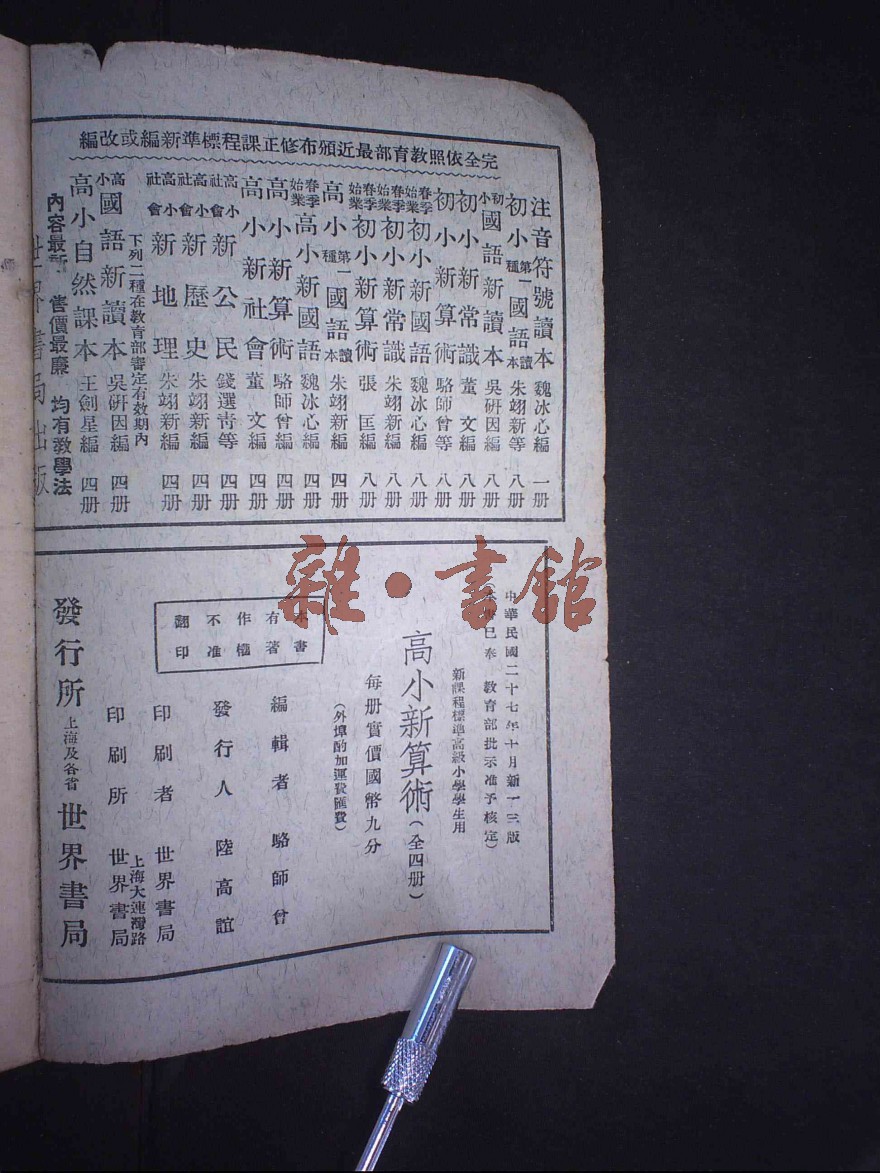 完全依照教育部最近頒布修正課程標準新編或改編
注音符號讀本 魏冰心編 一册
初小第一種國語讀本 朱翊新等 八册
初小國語新讀本 吳研因編 八册
初小新常識 董文編 八册
初小新算術 駱師曾等 八册
春季始業初小新國語 魏冰心編 八册
春季始業初小新常識 朱翊新編 八册
春季始業初小新算術 張匡編 八册
高小第一種國語讀本 朱翊新編 四册
春季始業高小新國語 魏冰心編 四册
高小新算術 駱師曾編 四册
高小新社會 董文編 四册
高小社會新公民 錢選青等 四册
高小社會新歷史 朱翊新編 四册
高小社會新地理 朱翊新編 四册
下列二種在教育部審定有效期內
高小國語新讀本 吳研因編 四册
高小自然課本 王劍星編 四册
內容最新 售價最廉 均有教學法
世界書局出版
雜·書館
中華民國二十七年十月新一三版
(本書已奉 教育部批示准予核定)
新課程標準高級小學學生用
高小新算術(全四册)
每册實價國幣九分
(外埠酌加運費匯費)
本書
有著
作權
不准
翻印
編輯者 駱師曾
發行人 陸高誼
印刷者 世界書局
上海大連灣路
印刷所 世界書局
發行所 上海及各省 世界書局